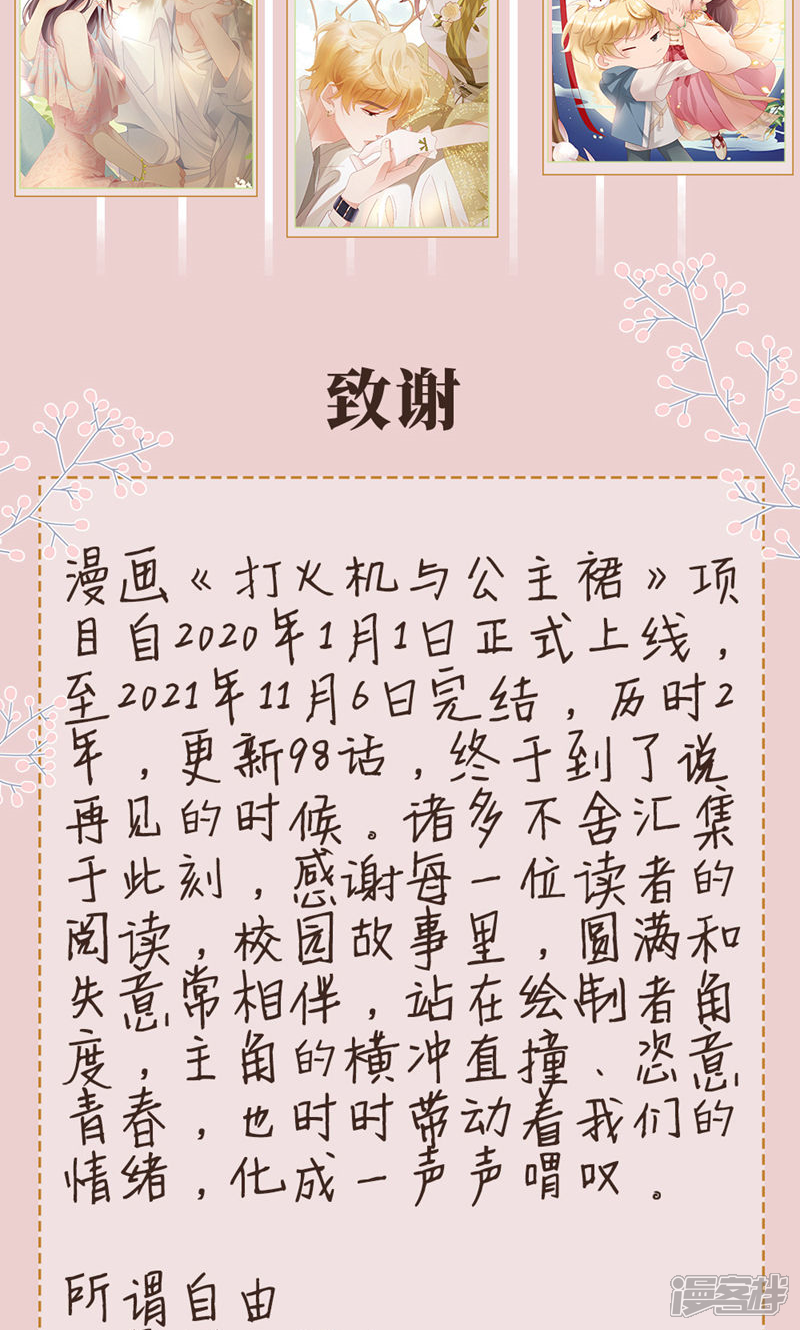 致谢
漫画《打火机与公主裙》项
目自2020年1月1日正式上线，
至2021年11月6日完结，历时2
年，更新98话，终于到了说
再见的时候。诸多不舍汇集
于此刻，感谢每一位读者的
阅读，校园故事里，圆满和
失意常相伴，站在绘制者角
度，主角的横冲直撞、恣意
青春，也时时带动着我们的
情绪，化成一声声喟叹。
所谓自由
漫客栈